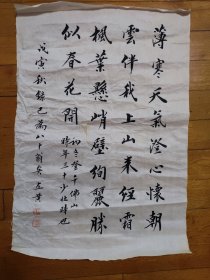 薄寒天氣澄心懷朝
雲伴我上山來經霜
楓葉懸峭壁絢麗勝
似春花開
初冬登千佛山
時年三十少壯時也
戊寅秋錄已八十翁